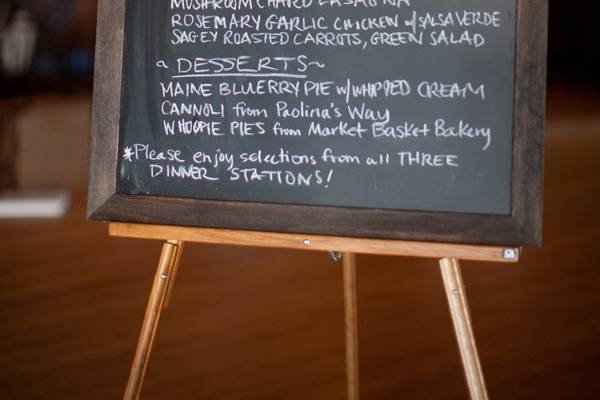 MUSHROOM CHARD LASAGNA
ROSEMARY GARLIC CHICKEN w/ SALSA VERDE
SAGEY ROASTED CARROTS, GREEN SALAD
~ DESSERTS ~
MAINE BLUERRY PIE w/ WHIPPED CREAM
CANNOLI from Paolina's Way
WHOOPIE PIES from Market Basket Bakery
*Please enjoy selections from all THREE
DINNER STATIONS!